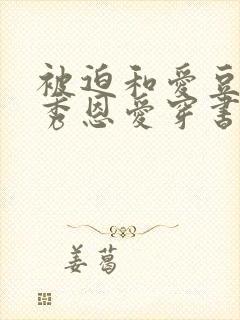 被迫和爱豆
秀恩爱穿书
姜葛